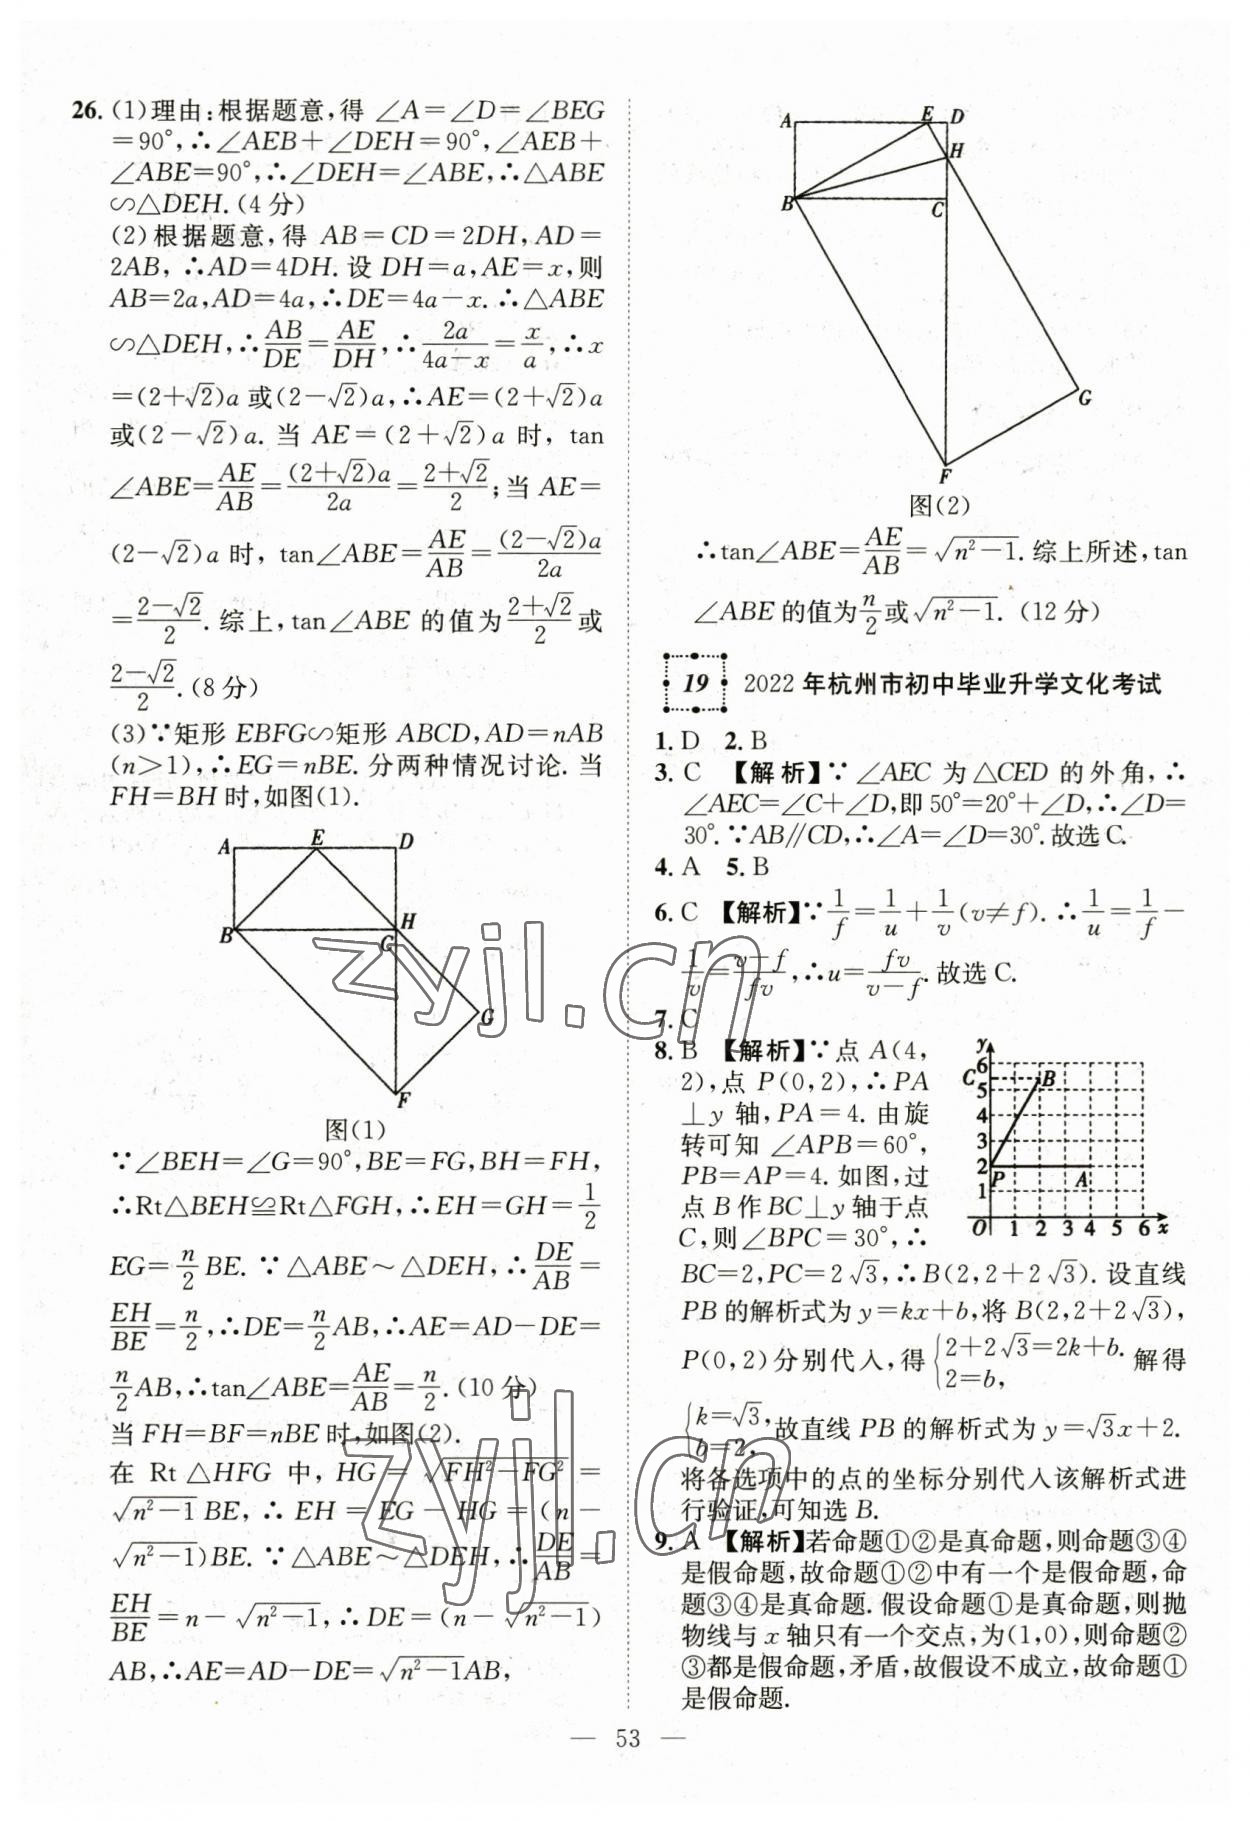 26. (1)理由:根据题意,得 ∠A=∠D=∠BEG
=90°,∴∠AEB+∠DEH=90°,∠AEB+
∠ABE=90°,∴∠DEH=∠ABE,∴△ABE
∽△DEH.(4 分)
(2)根据题意,得 AB=CD=2DH,AD=
2AB, ∴AD=4DH. 设 DH=a,AE=x,则
AB=2a,AD=4a,∴DE=4a-x. ∵△ABE
∽△DEH,∴AB/DE=AE/DH,∴2a/(4a-x)=x/a,∴x
=(2+√2)a 或(2-√2)a,∴AE=(2+√2)a
或(2-√2)a. 当 AE=(2+√2)a 时, tan
∠ABE=AE/AB=(2+√2)a/2a=(2+√2)/2;当 AE=
(2-√2)a 时, tan∠ABE=AE/AB=(2-√2)a/2a
=(2-√2)/2. 综上,tan∠ABE 的值为(2+√2)/2或
(2-√2)/2.(8 分)
(3)∵矩形 EBFG∽矩形 ABCD,AD=nAB
(n>1),∴EG=nBE. 分两种情况讨论. 当
FH=BH 时,如图(1).
A E D
B H
G
G
F
图(1)
∵∠BEH=∠G=90°,BE=FG,BH=FH,
∴Rt△BEH≌Rt△FGH,∴EH=GH=1/2
EG=n/2 BE. ∵△ABE~△DEH,∴DE/AB=
EH/BE=n/2,∴DE=n/2AB,∴AE=AD-DE=
n/2AB,∴tan∠ABE=AE/AB=n/2.(10 分)
当 FH=BF=nBE 时,如图(2).
在 Rt△HFG 中, HG=√(FH²-FG²)=
√(n²-1)BE, ∴EH=EG-HG=(n-
√(n²-1))BE. ∵△ABE~△DEH,∴DE/AB=
EH/BE=n-√(n²-1),∴DE=(n-√(n²-1))
AB,∴AE=AD-DE=√(n²-1)AB,
A E D
H
B C
G
F
图(2)
∴tan∠ABE=AE/AB=√(n²-1). 综上所述,tan
∠ABE 的值为n/2或√(n²-1). (12 分)
19 2022 年杭州市初中毕业升学文化考试
1. D 2. B
3. C 【解析】∵∠AEC 为△CED 的外角,∴
∠AEC=∠C+∠D,即 50°=20°+∠D,∴∠D=
30°. ∵AB∥CD,∴∠A=∠D=30°. 故选C.
4. A 5. B
6. C 【解析】∵1/f=1/u+1/v(v≠f). ∴1/u=1/f-
1/v=(v-f)/fv,∴u=fv/(v-f). 故选 C.
7. C
8. B 【解析】∵点 A(4,
2),点 P(0,2),∴PA
⊥y 轴, PA=4. 由旋
转可知 ∠APB=60°,
PB=AP=4. 如图,过
点 B 作 BC⊥y 轴于点
C,则∠BPC=30°,∴
y
6
C B
5
4
3
2
P A
1
O 1 2 3 4 5 6 x
BC=2,PC=2√3,∴B(2,2+2√3). 设直线
PB 的解析式为 y=kx+b,将 B(2,2+2√3),
P(0,2)分别代入,得{2+2√3=2k+b. 2=b, 解得
{k=√3, b=2, 故直线 PB 的解析式为 y=√3x+2.
将各选项中的点的坐标分别代入该解析式进
行验证,可知选 B.
9. A 【解析】若命题①②是真命题,则命题③④
是假命题,故命题①②中有一个是假命题,命
题③④是真命题. 假设命题①是真命题,则抛
物线与 x 轴只有一个交点,为(1,0),则命题②
③都是假命题,矛盾,故假设不成立,故命题①
是假命题.
— 53 —
zyjl.cn
zyjl.cn